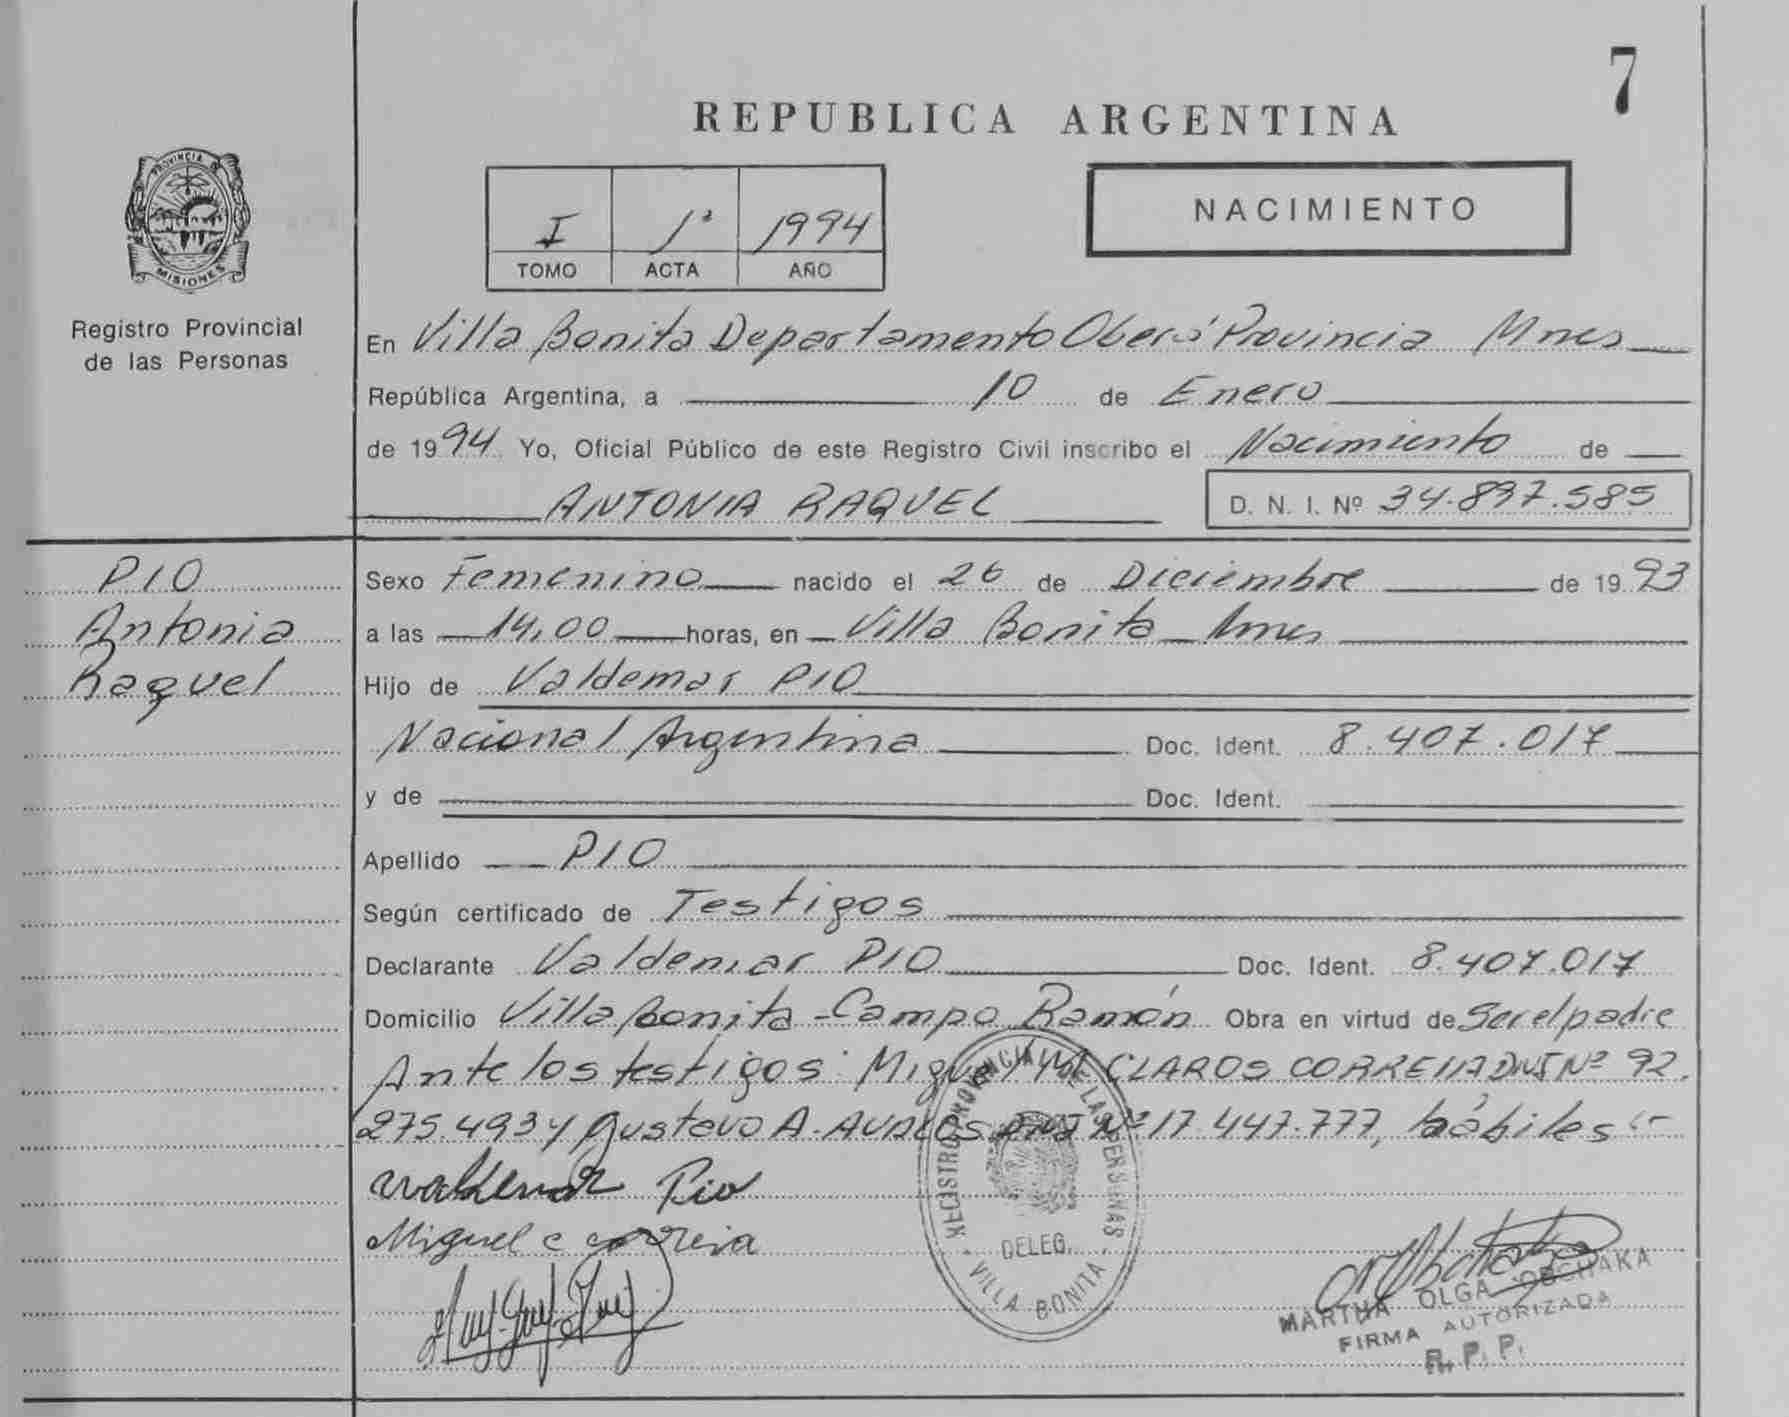 7
REPUBLICA ARGENTINA
PROVINCIA DE
MISIONES
Registro Provincial
de las Personas
I 1ª 1994
TOMO ACTA AÑO
NACIMIENTO
En Villa Bonita Departamento Oberá Provincia Mnes
República Argentina, a 10 de Enero
de 1994 Yo, Oficial Público de este Registro Civil inscribo el Nacimiento de
ANTONIA RAQUEL D. N. I. Nº 34.897.585
PIO
Antonia
Raquel
Sexo Femenino nacido el 26 de Diciembre de 1993
a las 14,00 horas, en Villa Bonita Mnes
Hijo de Valdemar PIO
Nacional Argentina Doc. Ident. 8.407.017
y de Doc. Ident.
Apellido PIO
Según certificado de Testigos
Declarante Valdemar PIO Doc. Ident. 8.407.017
Domicilio Villa Bonita - Campo Ramón Obra en virtud de Ser el padre
Ante los testigos: Miguel CLAROS CORREIIA DNI Nº 92.
275.493 y Gustavo A. AVALOS DNI Nº 17.447.777, hábiles
Valdemar Pio
Miguel c correia
REGISTRO PROVINCIAL DE LAS PERSONAS
DELEG.
VILLA BONITA
MARTHA OLGA OBCHAKA
FIRMA AUTORIZADA
R. P. P.